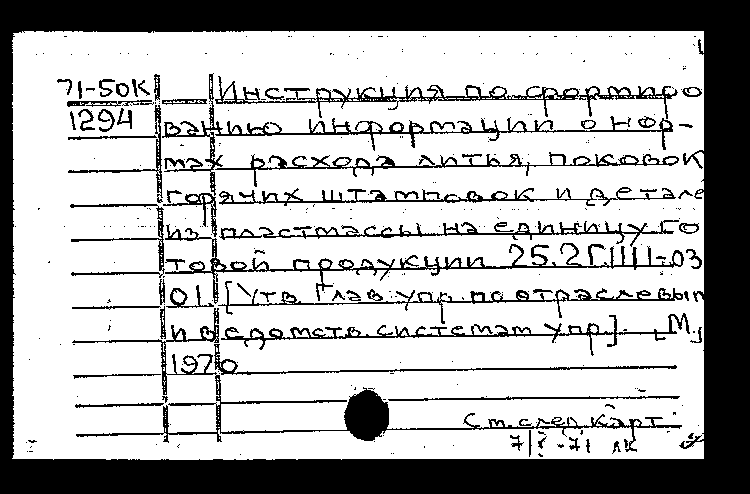 71-50К Инструкция по формиро
1294 ванию информации о нор-
мах расхода литья, поковок
горячих штамповок и детале
из пластмассы на единицу го
товой продукции 25.2Г.III-03
01. [Утв Глав.упр. по отраслевым
и ведомств. системам упр.]. [М.,
1970
См. след. карт.